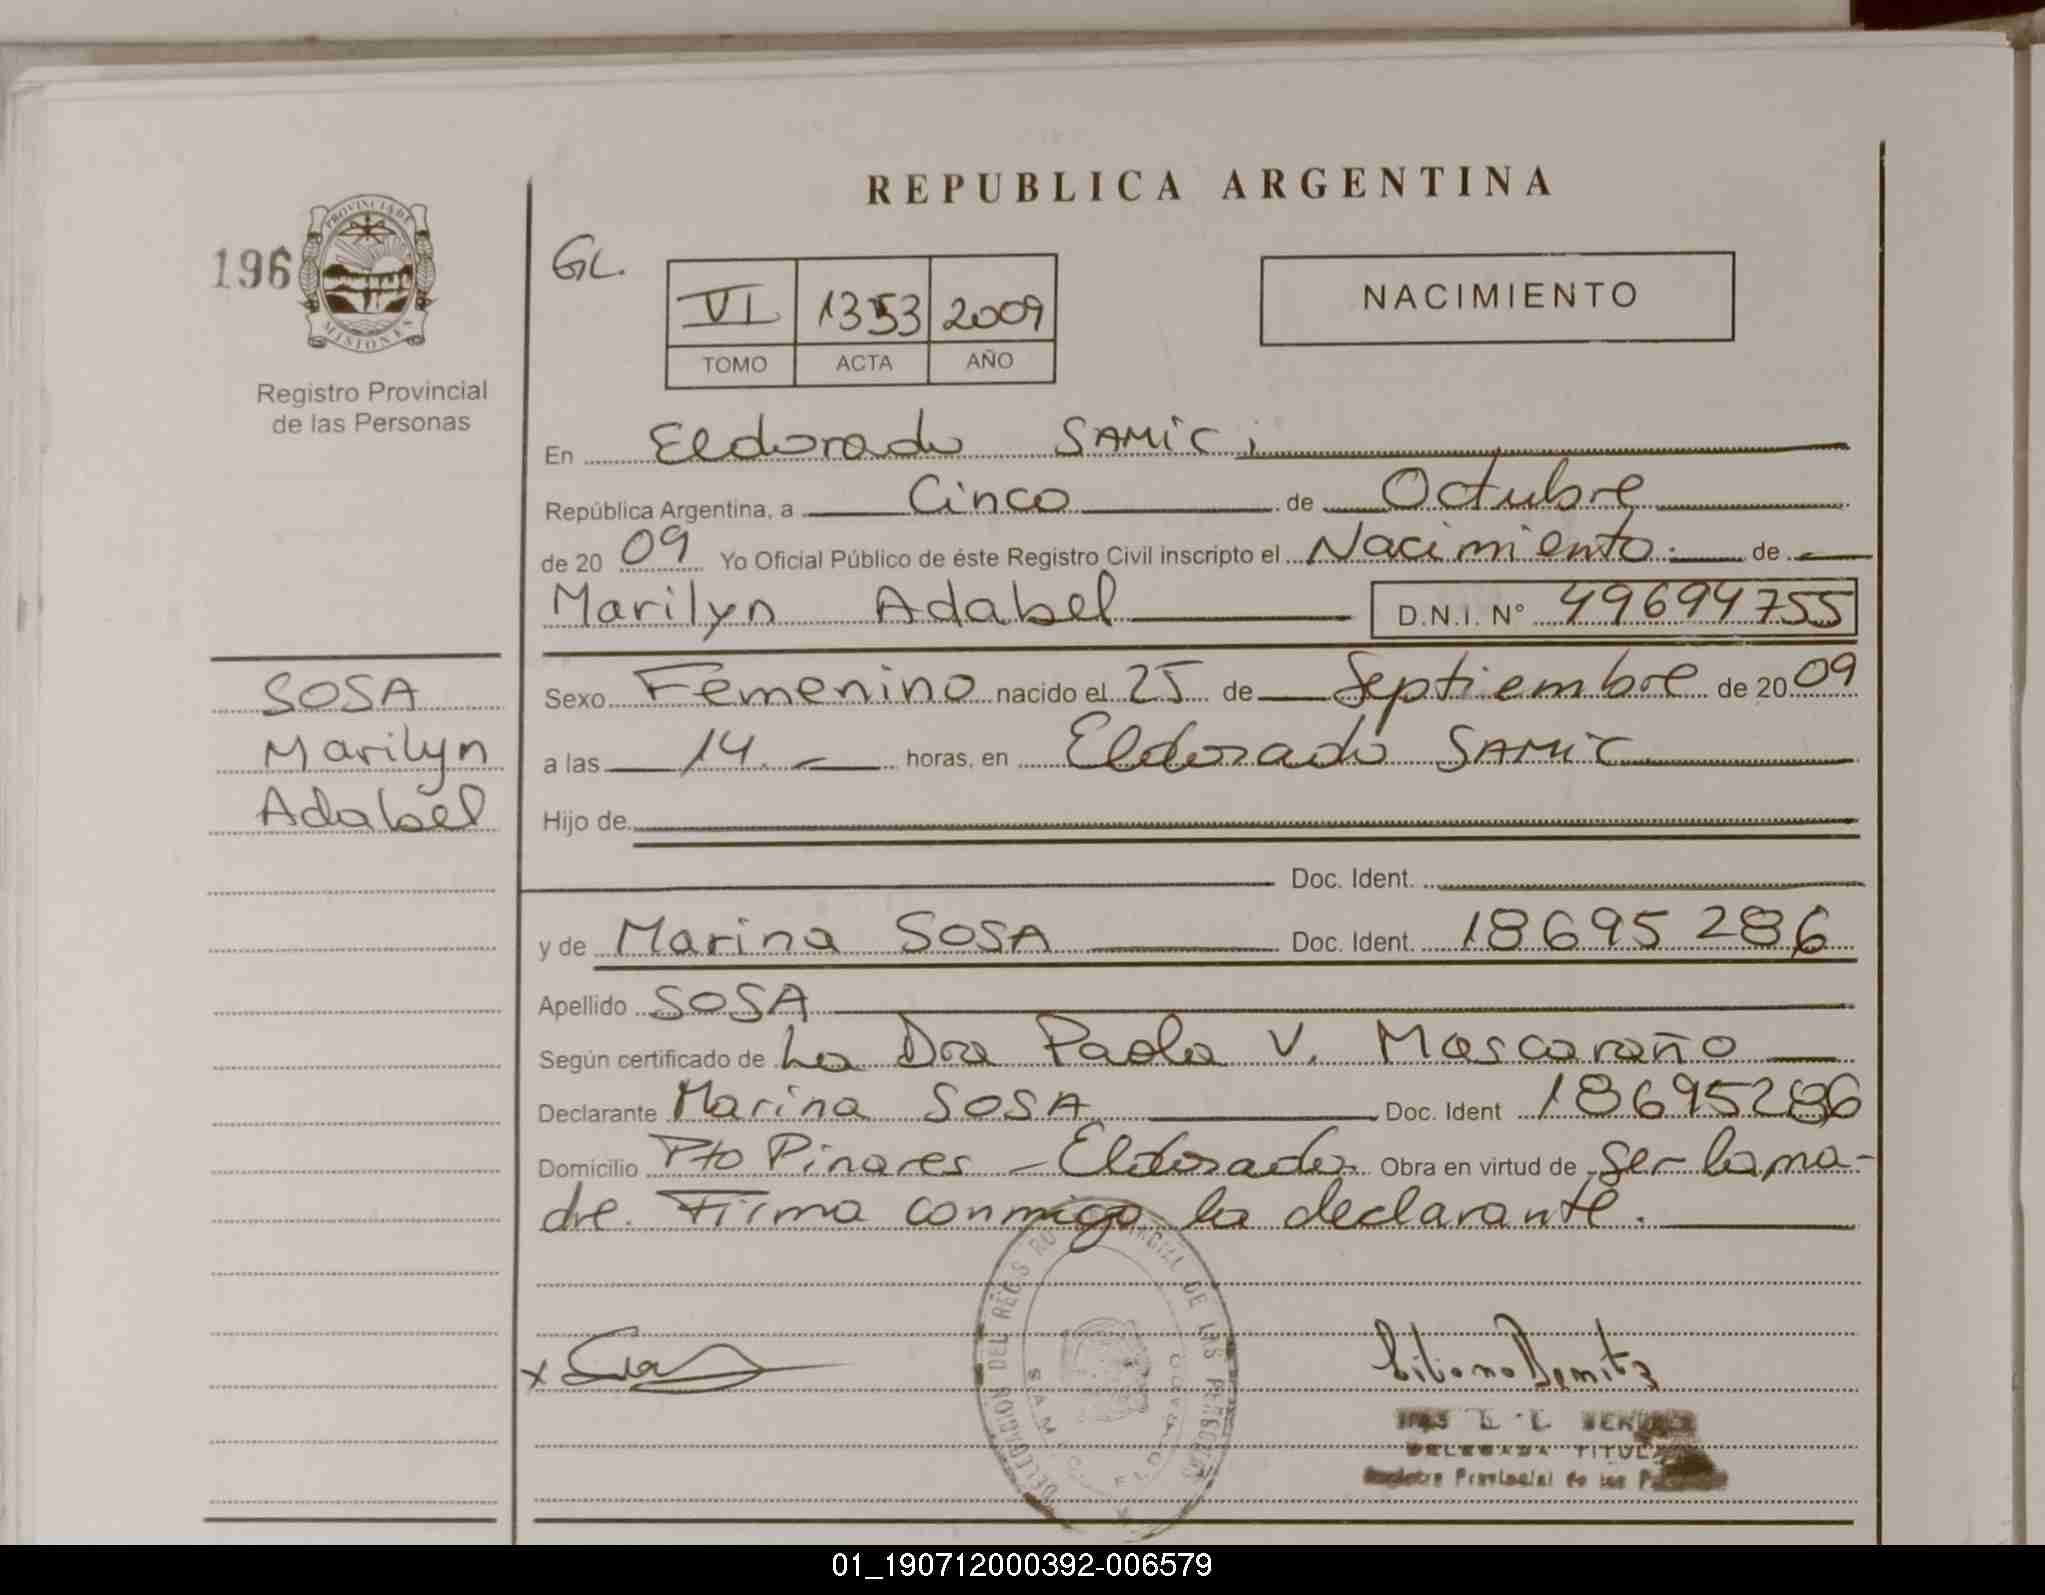 REPUBLICA ARGENTINA
196
PROVINCIA DE
MISIONES
Registro Provincial
de las Personas
GL.
VI 1353 2009
TOMO ACTA AÑO
NACIMIENTO
En Eldorado SAMIC,
República Argentina, a Cinco de Octubre
de 20 09 Yo Oficial Público de éste Registro Civil inscripto el Nacimiento de
Marilyn Adabel D.N.I. Nº 49694755
SOSA
Marilyn
Adabel
Sexo Femenino nacido el 25 de Septiembre de 20 09
a las 14 horas, en Eldorado SAMIC
Hijo de
Doc. Ident.
y de Marina SOSA Doc. Ident. 18695286
Apellido SOSA
Según certificado de La Dra Paola V. Mascaraño
Declarante Marina SOSA Doc. Ident 18695286
Domicilio Pto Pinares - Eldorado. Obra en virtud de ser la ma-
dre. Firma conmigo la declarante.
DELEGACION DEL DE LAS PERSONAS
SAMIC ELDORADO
x
Liliana Benitez
DELEGADA TITULAR
Registro Provincial de las
01_190712000392-006579